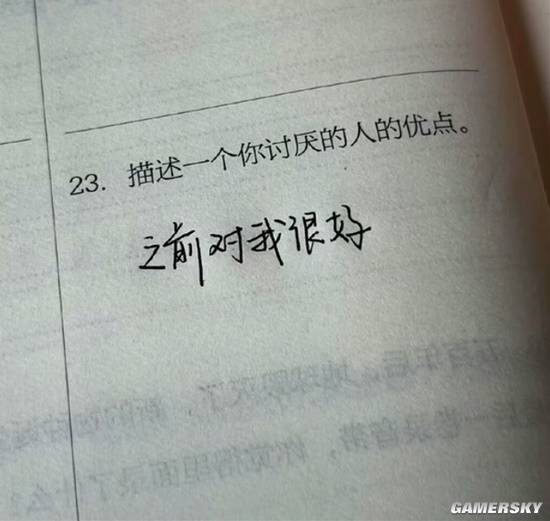 23. 描述一个你讨厌的人的优点。
之前对我很好
GAMERSKY